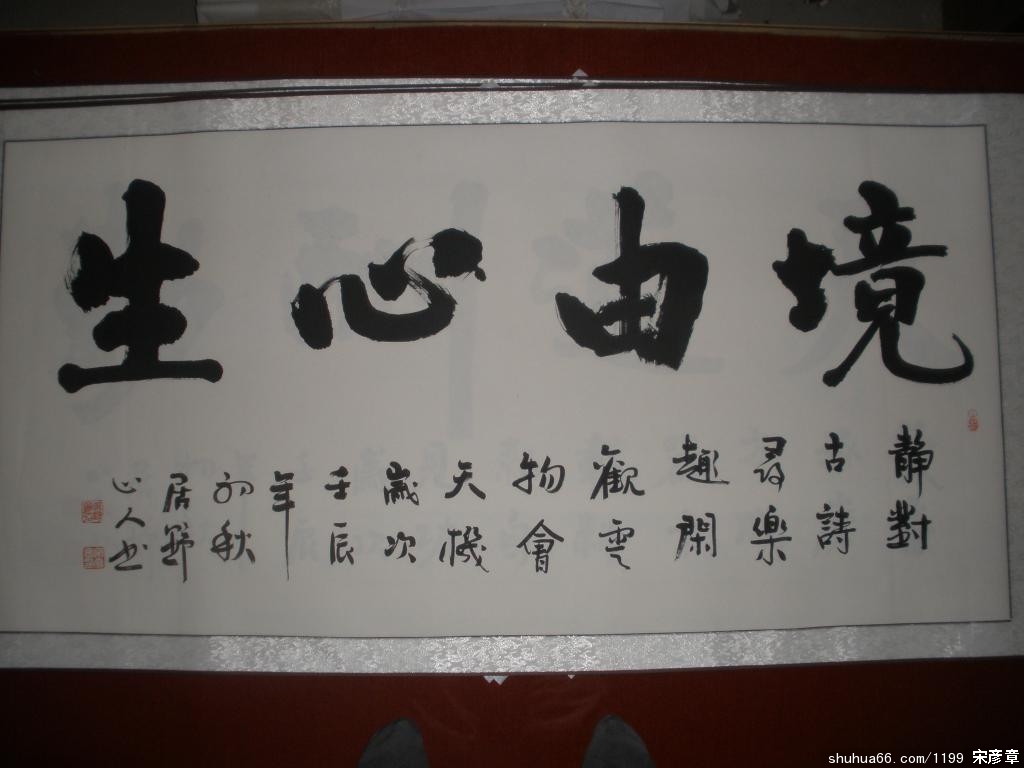 境由心生
靜對
古詩
尋樂
趣閑
觀雲
物會
天機
歲次
壬辰
年
初秋
居節
心人书
shuhua66.com/1199 宋彦章